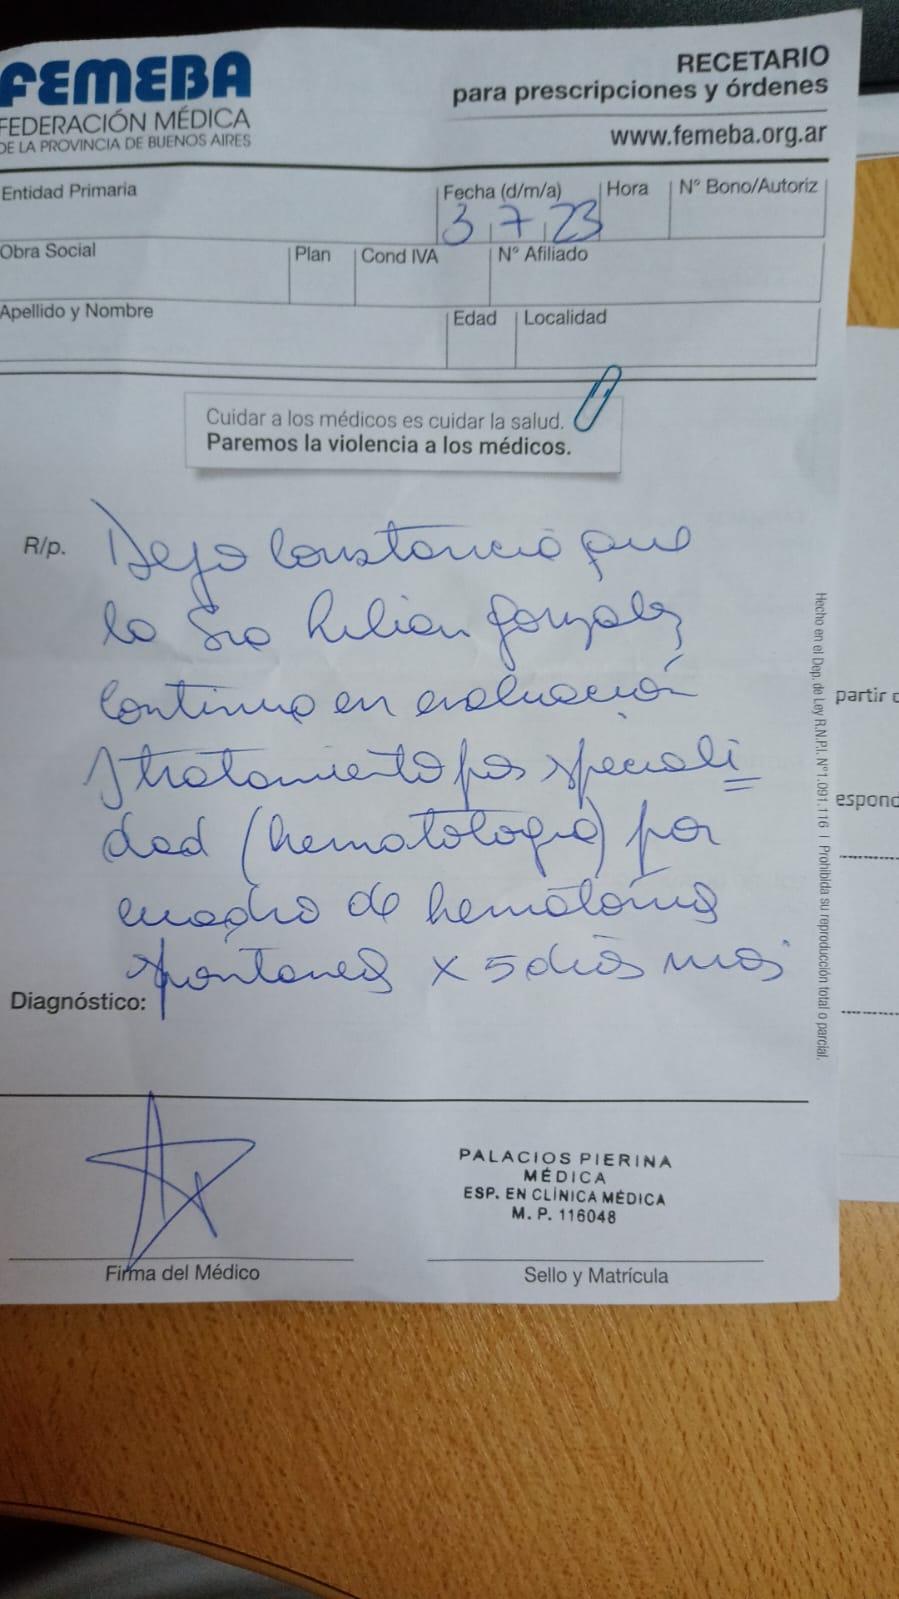 FEMEBA
FEDERACIÓN MÉDICA
DE LA PROVINCIA DE BUENOS AIRES
RECETARIO
para prescripciones y órdenes
www.femeba.org.ar
Entidad Primaria
Fecha (d/m/a)
Hora
N° Bono/Autoriz
3 7 23
Obra Social
Plan
Cond IVA
N° Afiliado
Apellido y Nombre
Edad
Localidad
Cuidar a los médicos es cuidar la salud.
Paremos la violencia a los médicos.
R/p.
Dejo constancia que
la Sra Lilian Gonzalez
continua en evaluación
y tratamiento por especiali
dad (hematologia) por
cuadro de hematomas
espontaneos x 5 dias mas
Diagnóstico:
Hecho en el Dep. de Ley R.N.P.I. N°1.091.116 | Prohibida su reproducción total o parcial.
partir
PALACIOS PIERINA
MÉDICA
ESP. EN CLÍNICA MÉDICA
M. P. 116048
Firma del Médico
Sello y Matrícula